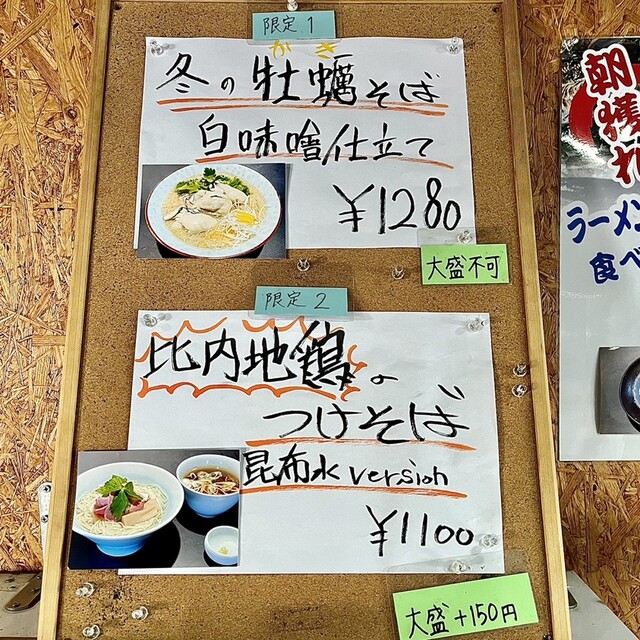 限定1
かき
冬の牡蠣そば
白味噌仕立て
¥1280
大盛不可
限定2
比内地鶏の
つけそば
昆布水version
¥1100
大盛+150円
朝獲れ
ラーメン
食べ